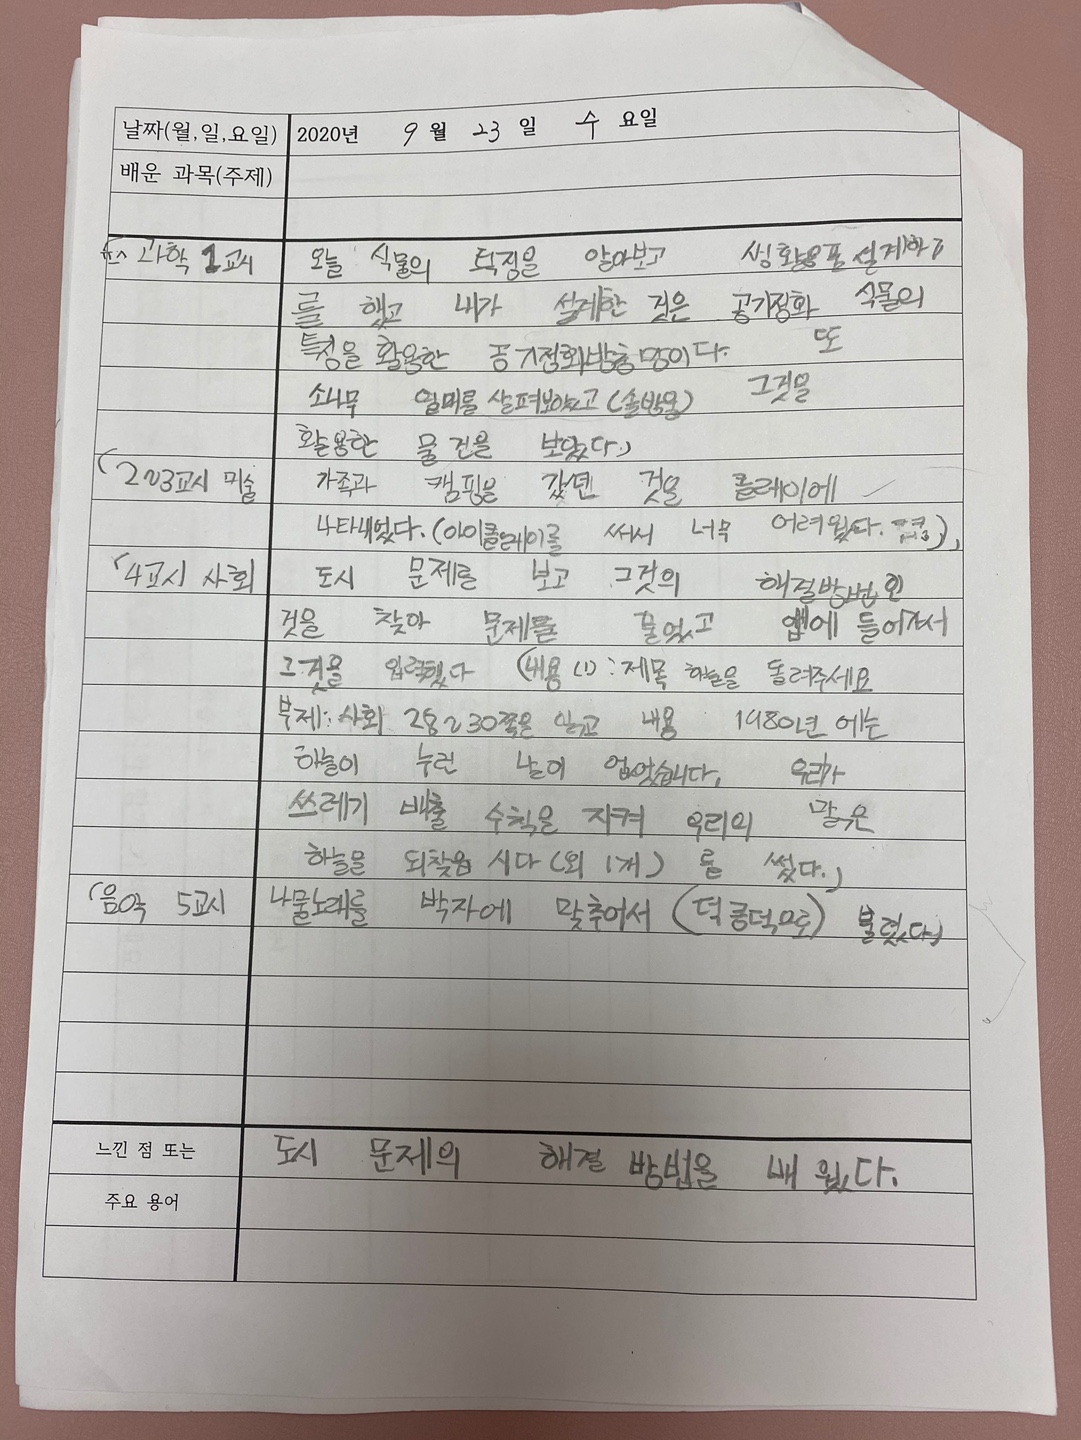 날짜(월,일,요일) 2020년 9월 23일 수 요일
배운 과목(주제)
과학 1교시 오늘 식물의 특징을 알아보고 생활용품 설계하기
를 했고 내가 설계한 것은 공기정화 식물의
특징을 활용한 공기정화 이다. 또
소나무 열매를 살펴보았고 (솔방울) 그것을
활용한 물건을 보았다.)
(2~3교시 미술 가족과 캠핑을 갔던 것을 클레이에
나타내었다. (아이클레이를 써서 너무 어려웠다. ),
(4교시 사회 도시 문제를 보고 그것의 해결방법인
것을 찾아 문제를 풀었고 앱에 들어가서
그것을 입력했다 (내용 (1): 제목 하늘을 돌려주세요
부제: 사회 28~30쪽을 읽고 내용 1980년 에는
하늘이 누런 날이 없었습니다. 우리가
쓰레기 배출 수칙을 지켜 우리의 맑은
하늘을 되찾읍시다 (외 1개) 를 썼다.)
(음악 5교시 나물노래를 박자에 맞추어서 (덕쿵덕으로) 불렀다.)
느낀 점 또는 도시 문제의 해결 방법을 배웠다.
주요 용어